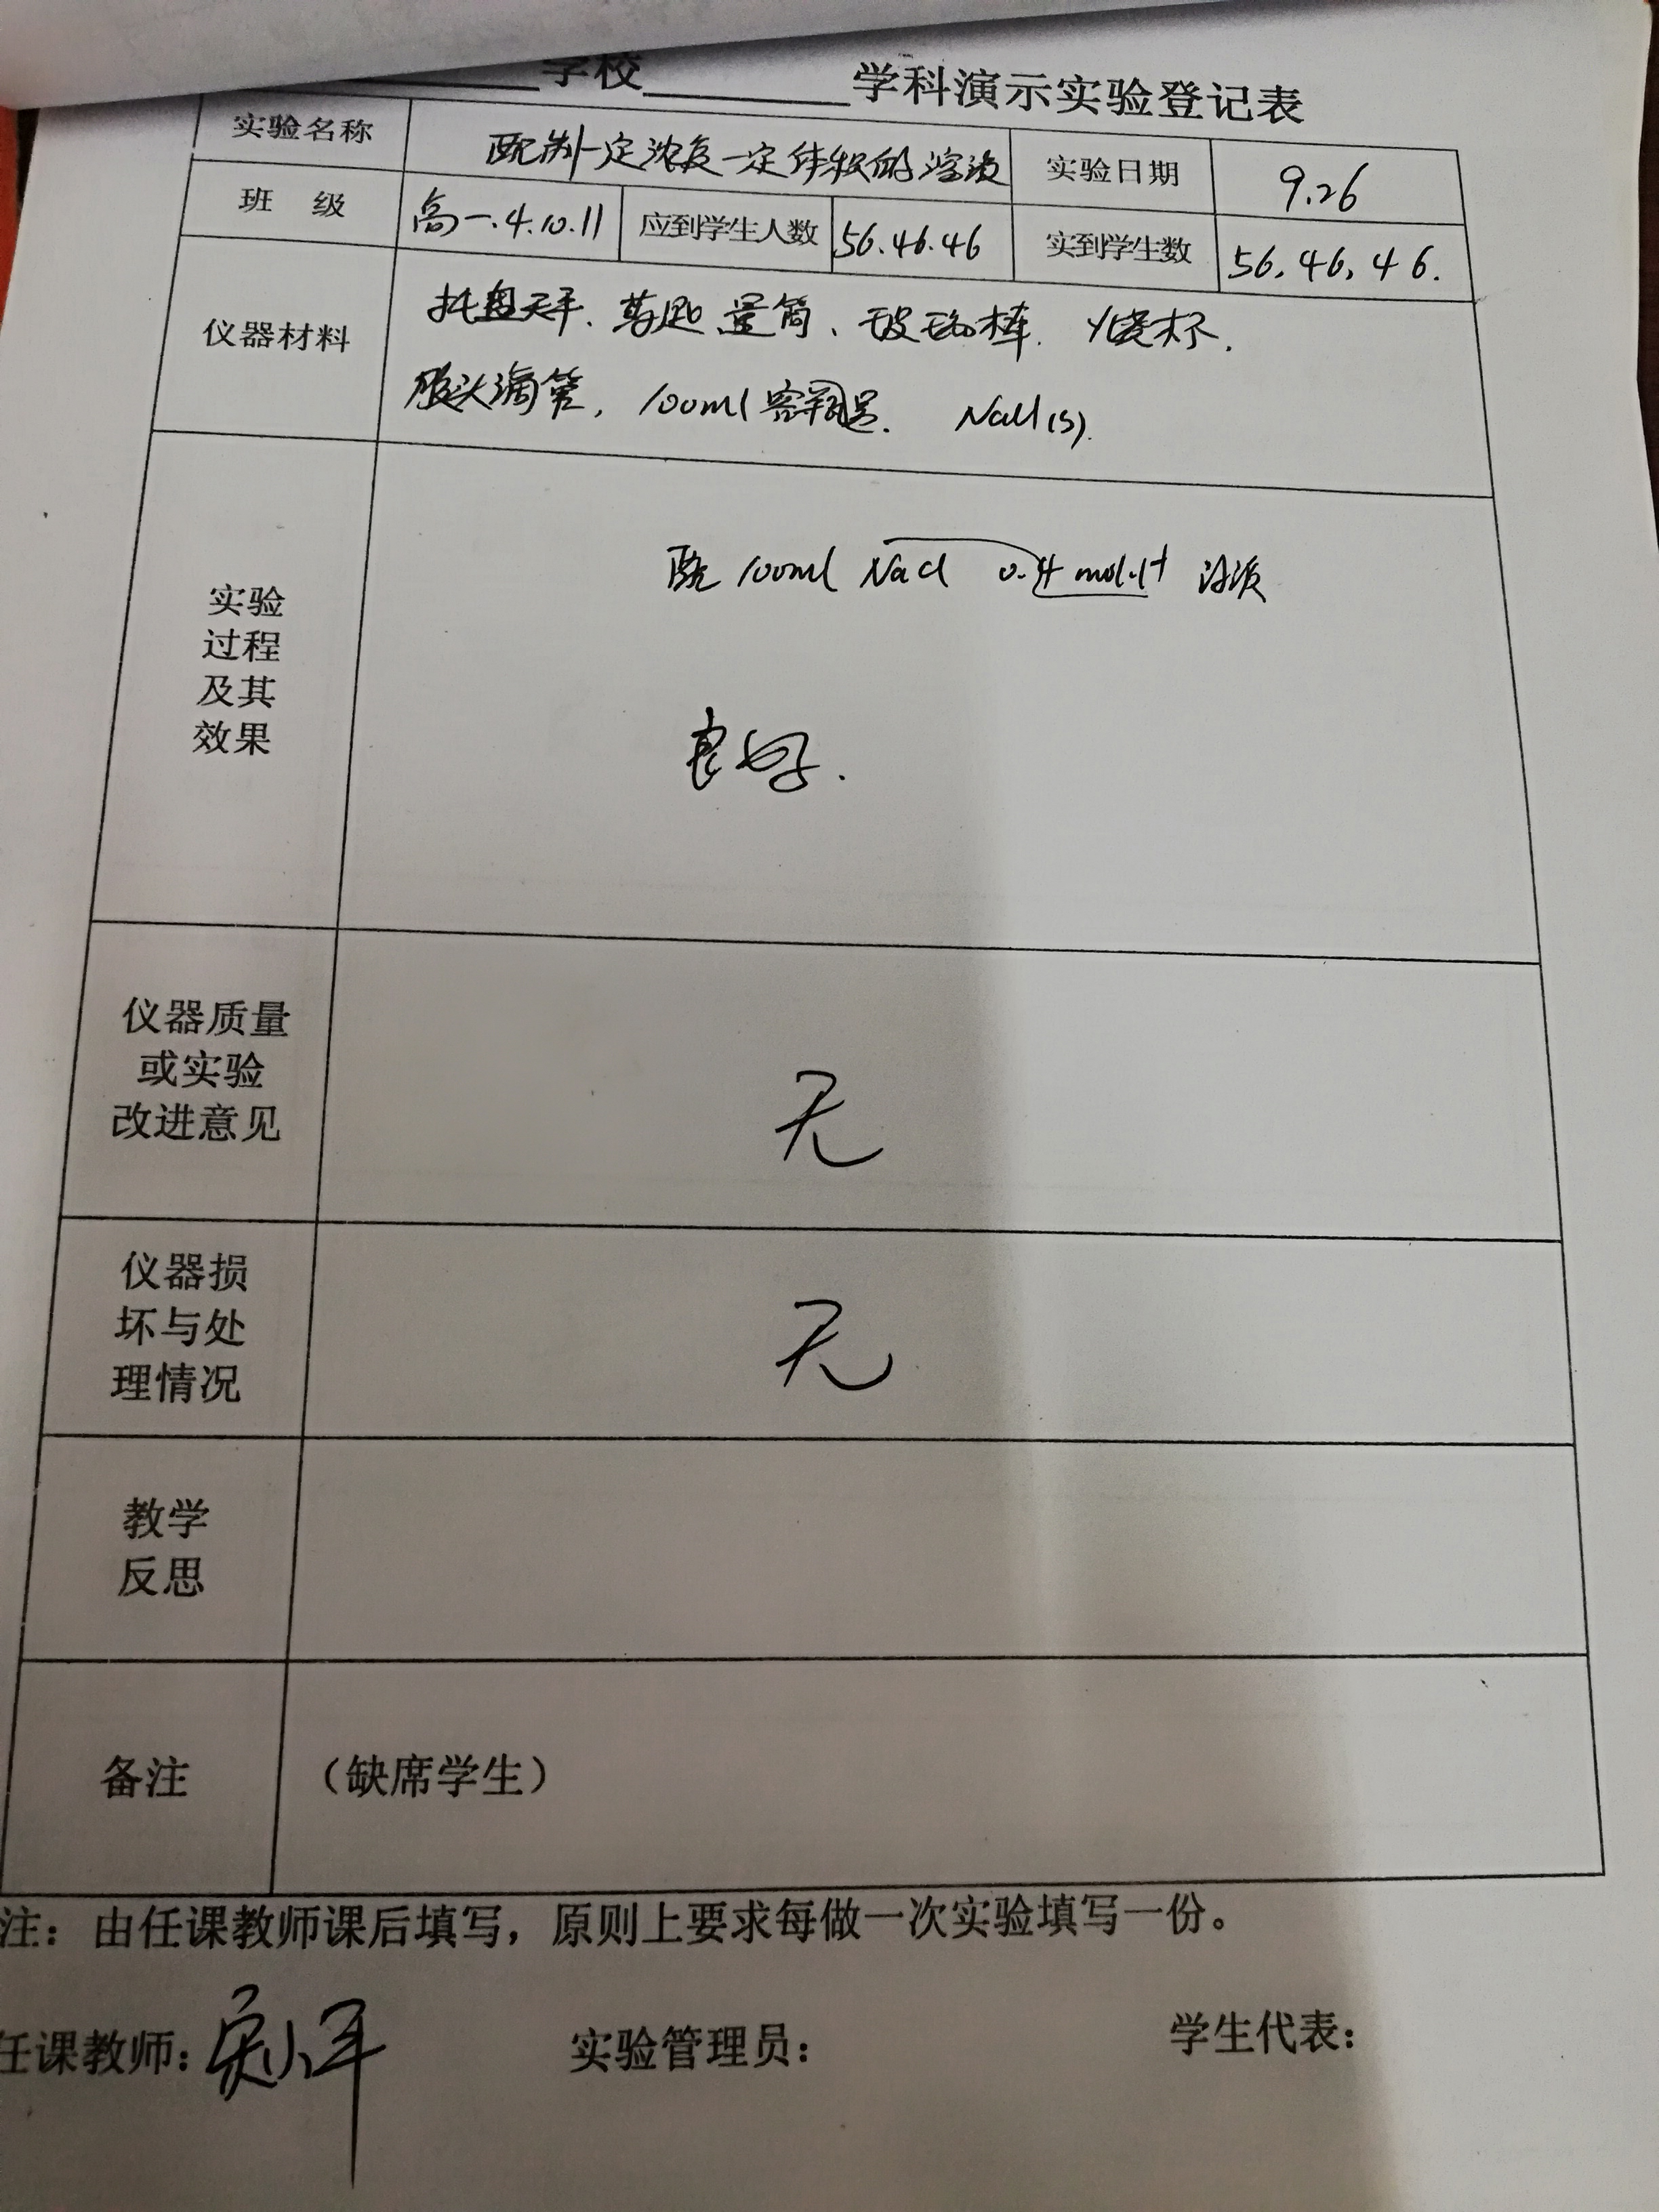 学校 学科演示实验登记表
实验名称 配制一定浓度一定体积的溶液 实验日期 9.26
班 级 高一.4.10.11 应到学生人数 56.46.46 实到学生数 56,46,46.
仪器材料 托盘天平、药匙 量筒、玻璃棒. 烧杯.
胶头滴管, 100ml容量瓶. NaCl(s).
实验
过程
及其
效果
配 100ml NaCl 0.4 mol·L⁻¹ 溶液
良好.
仪器质量
或实验
改进意见
无
仪器损
坏与处
理情况
无
教学
反思
备注 （缺席学生）
注：由任课教师课后填写，原则上要求每做一次实验填写一份。
任课教师: 实验管理员: 学生代表: